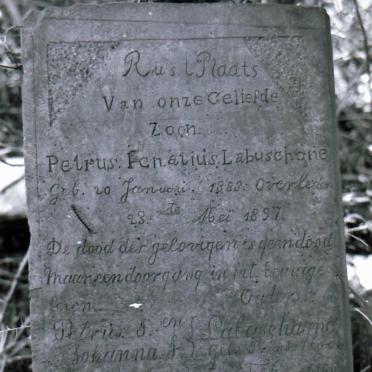 Rust Plaats
Van onze Geliefde
Zoon.
Petrus. Ignatius. Labuschgne
Geb. 20 Januari. 1888. Overleden
23.ste Mei 1897.
De dood der gelovigen is geen dood
Maar een doorgang in tut eeuwige
leven Ouders
Petrus. J. en Labuschagne
Johanna. J. Geb.